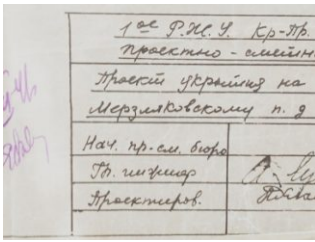 1ое Р.Ж.У. Кр-Пр.
проектно-сметн
Проект укрытия на
Мерзляковскому п. д
Нач. пр.-см. бюро
Гл. инженер
Проектиров.